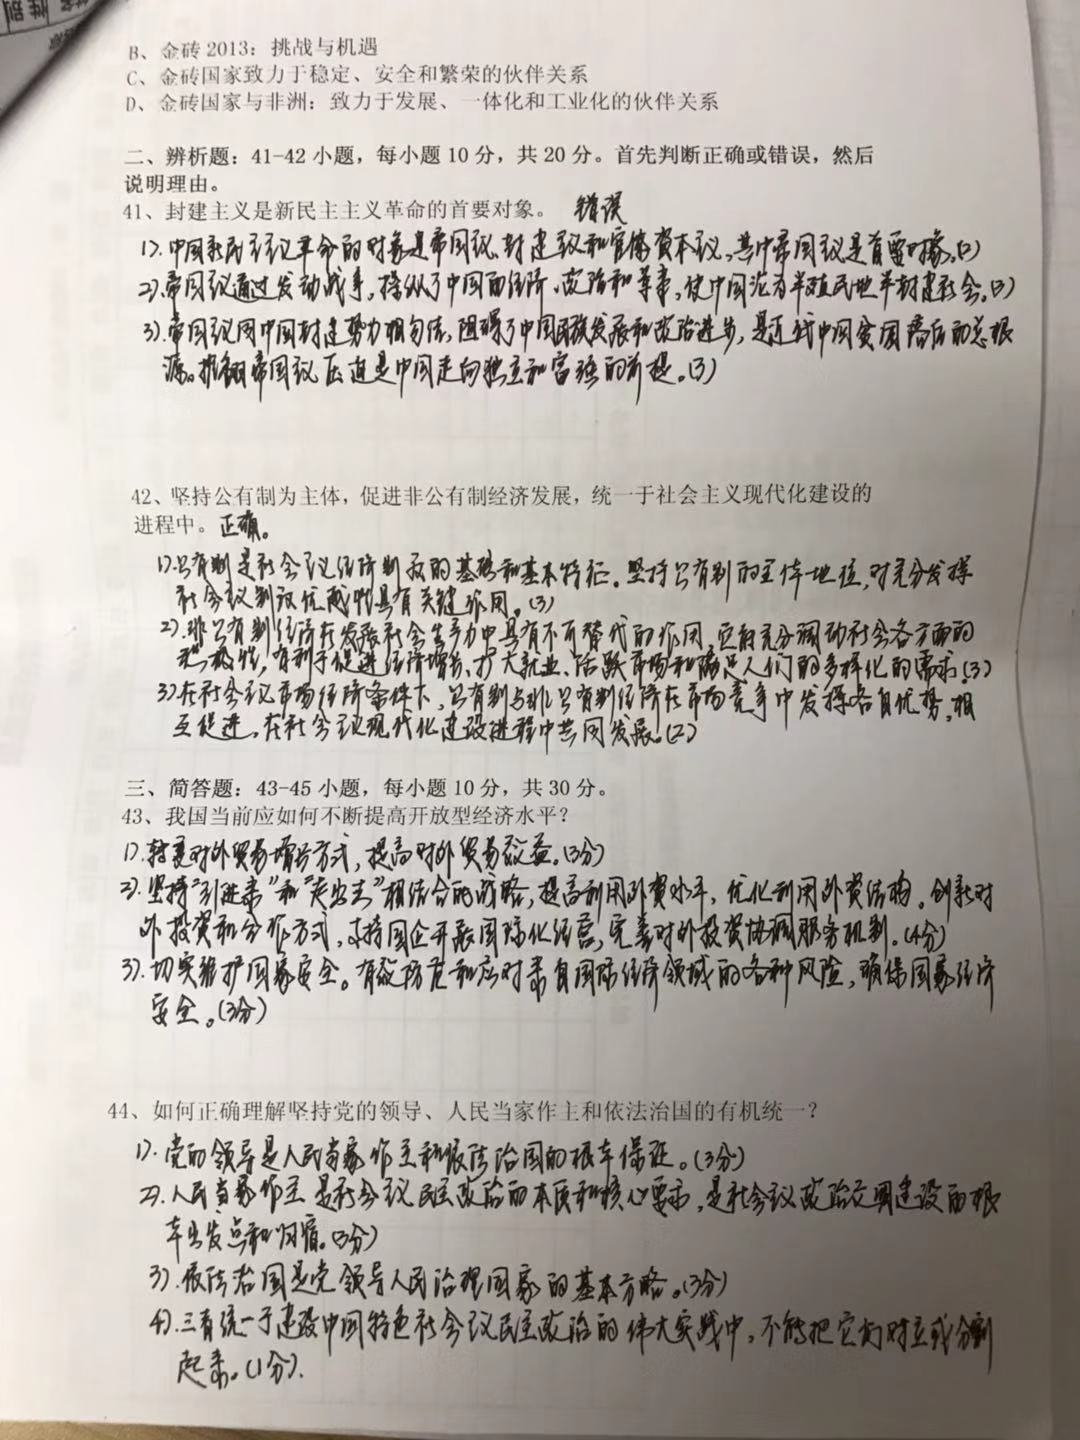 性别
B、金砖 2013：挑战与机遇
C、金砖国家致力于稳定、安全和繁荣的伙伴关系
D、金砖国家与非洲：致力于发展、一体化和工业化的伙伴关系
二、辨析题：41-42 小题，每小题 10 分，共 20 分。首先判断正确或错误，然后
说明理由。
41、封建主义是新民主主义革命的首要对象。 错误
1).中国新民主主义革命的对象是帝国主义、封建主义和官僚资本主义。其中帝国主义是首要对象。(2)
2).帝国主义通过发动战争，操纵了中国的经济、政治和军事，使中国沦为半殖民地半封建社会。(3)
3).帝国主义同中国封建势力相勾结，阻碍了中国民族发展和政治进步，是近代中国贫困落后的总根
源。推翻帝国主义压迫是中国走向独立和富强的前提。(3)
42、坚持公有制为主体，促进非公有制经济发展，统一于社会主义现代化建设的
进程中。正确。
1).公有制是社会主义经济制度的基础和基本特征。坚持公有制的主体地位，对充分发挥
社会主义制度优越性具有关键作用。(3)
2).非公有制经济在发展社会生产力中具有不可替代的作用，它能充分调动社会各方面的
积极性，有利于促进经济增长、扩大就业、活跃市场和满足人们的多样化的需求。(3)
3)在社会主义市场经济条件下，公有制与非公有制经济在市场竞争中发挥各自优势，相
互促进，在社会主义现代化建设进程中共同发展。(2)
三、简答题：43-45 小题，每小题 10 分，共 30 分。
43、我国当前应如何不断提高开放型经济水平？
1).转变对外贸易增长方式，提高对外贸易效益。(3分)
2).坚持"引进来"和"走出去"相结合的战略，提高利用外资水平，优化利用外资结构。创新对
外投资和合作方式，支持国企开展国际化经营，完善对外投资协调服务机制。(4分)
3).切实维护国家安全。有效防范和应对来自国际经济领域的各种风险，确保国家经济
安全。(3分)
44、如何正确理解坚持党的领导、人民当家作主和依法治国的有机统一？
1).党的领导是人民当家作主和依法治国的根本保证。(3分)
2).人民当家作主是社会主义民主政治的本质和核心要求，是社会主义政治文明建设的根
本出发点和归宿。(3分)
3).依法治国是党领导人民治理国家的基本方略。(3分)
4).三者统一于建设中国特色社会主义民主政治的伟大实践中，不能把它们对立或分割
起来。(1分).